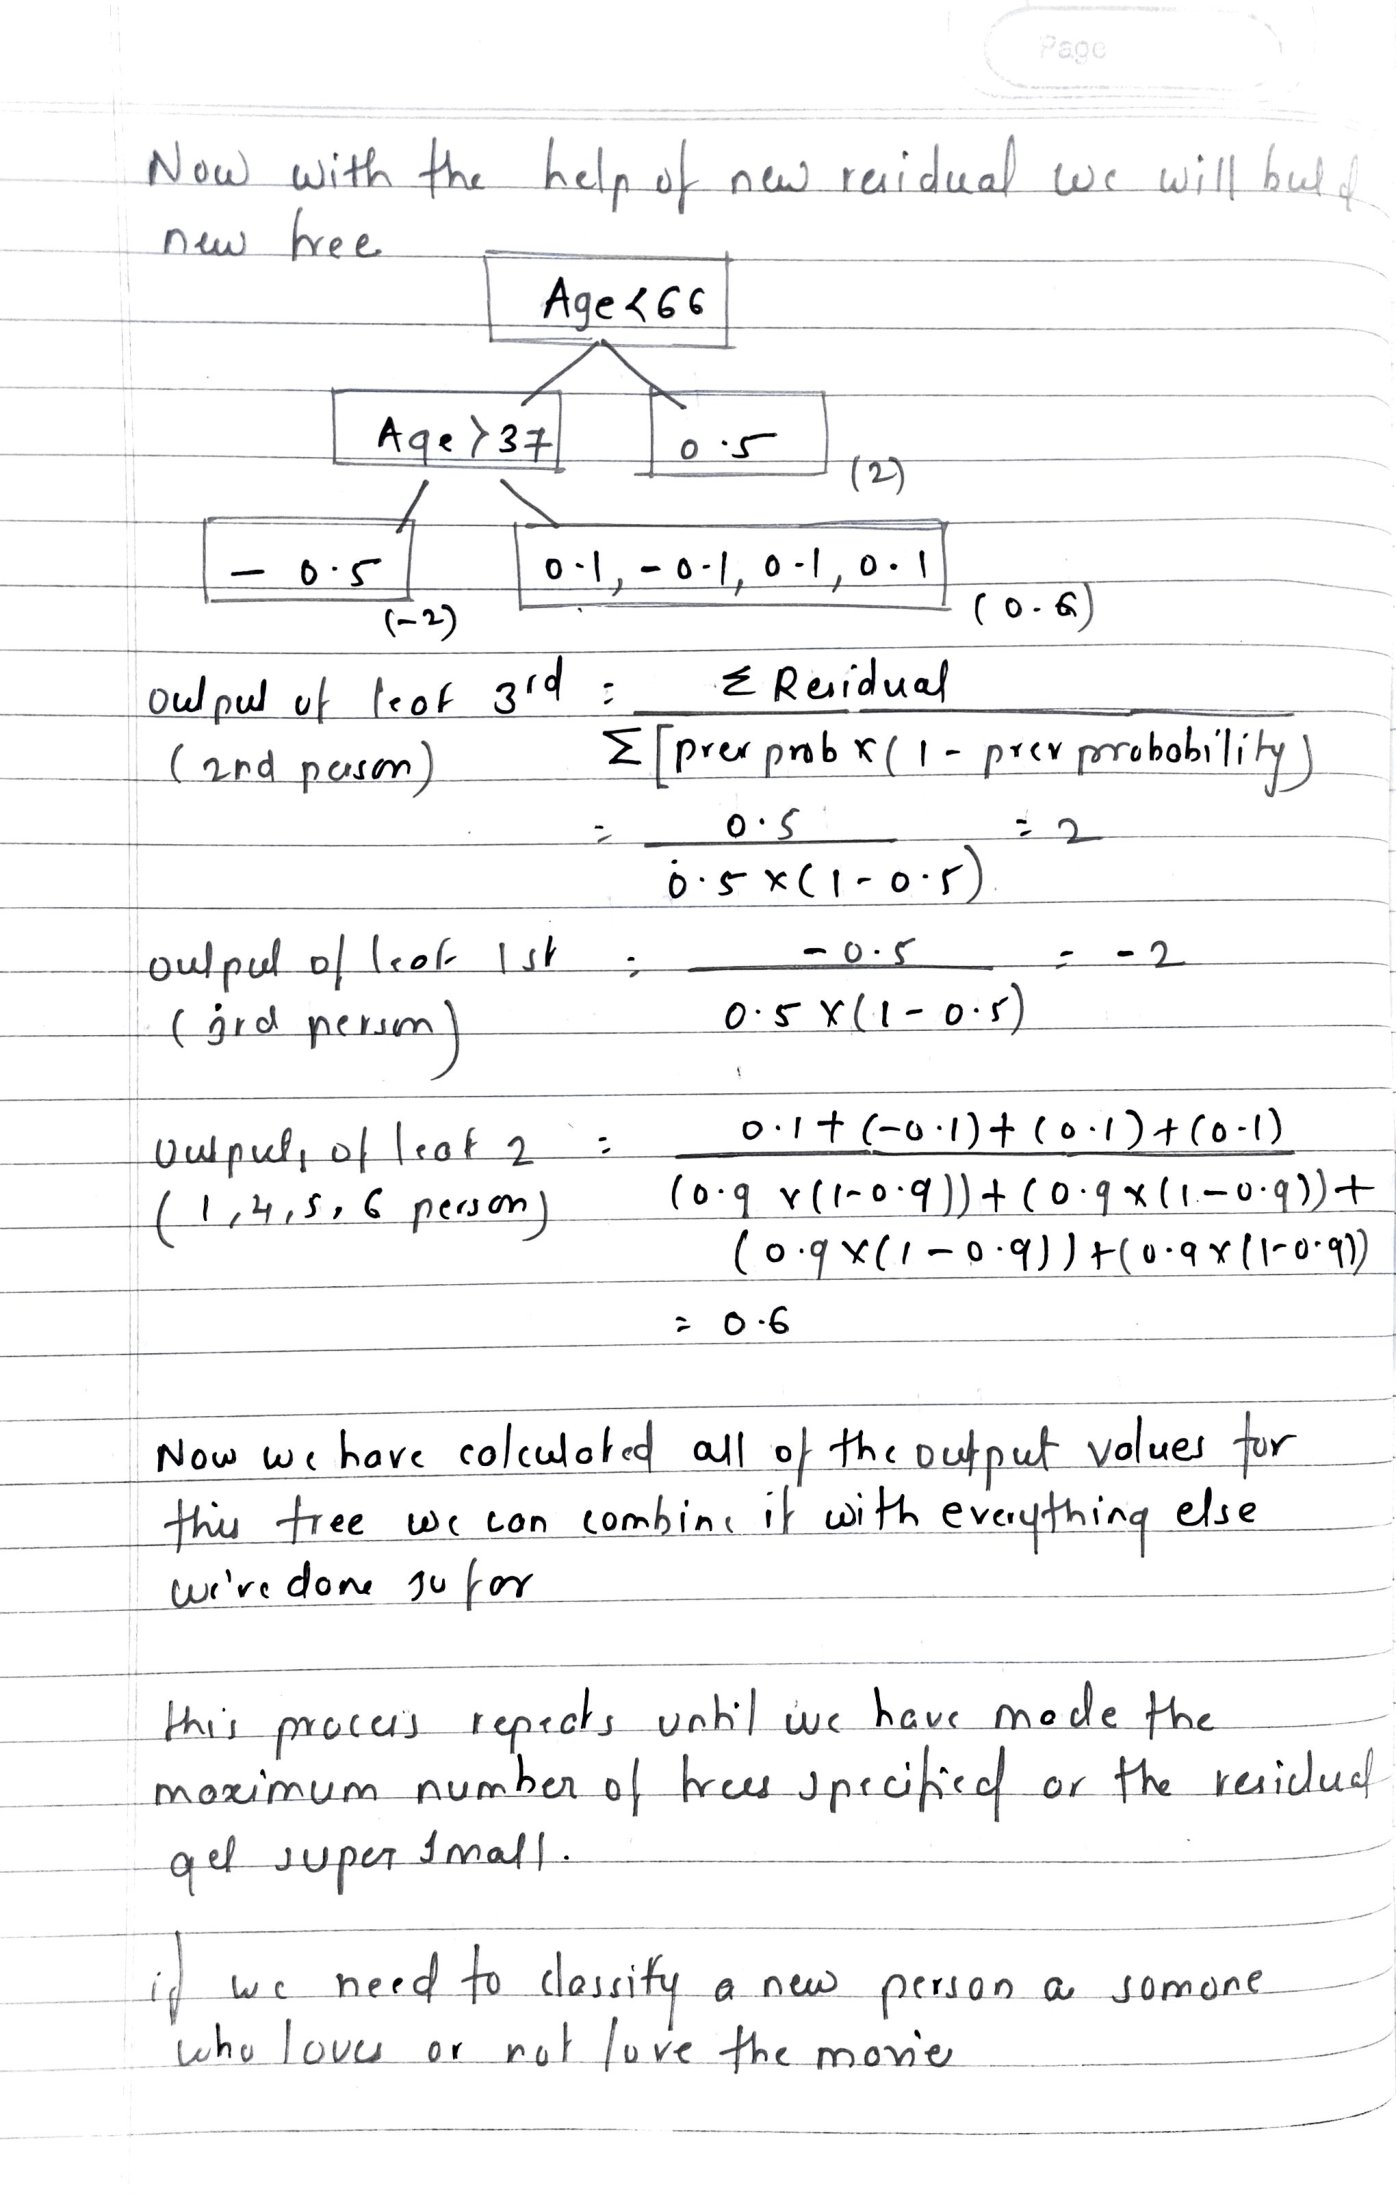 Page
Now with the help of new residual we will buld
new tree
Age < 66
Age > 37
0.5
(2)
- 0.5
(-2)
0.1, -0.1, 0.1, 0.1
(0.6)
output of leaf 3rd = Σ Residual
(2nd person) Σ [prev prob x (1 - prev probobility)
= 0.5 = 2
0.5 x (1 - 0.5)
output of leaf 1st = - 0.5 = - 2
(3rd person) 0.5 x (1 - 0.5)
output of leaf 2 = 0.1 + (-0.1) + (0.1) + (0.1)
(1, 4, 5, 6 person) (0.9 x (1-0.9)) + (0.9 x (1-0.9)) +
(0.9 x (1 - 0.9)) + (0.9 x (1-0.9))
= 0.6
Now we have calculated all of the output values for
this tree we can combine it with everything else
we're done so far
this process repeats until we have made the
maximum number of trees specified or the residual
get super small.
if we need to classify a new person a somone
who loves or not love the movie